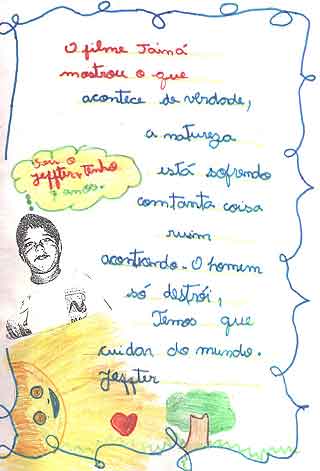 O filme Tainá
mostrou o que
acontece de verdade,
a natureza
está sofrendo
com tanta coisa
ruim
acontecendo. O homem
só destrói,
Temos que
cuidar do mundo.
Jeffter
Sou o
Jeffter, tenho
anos.